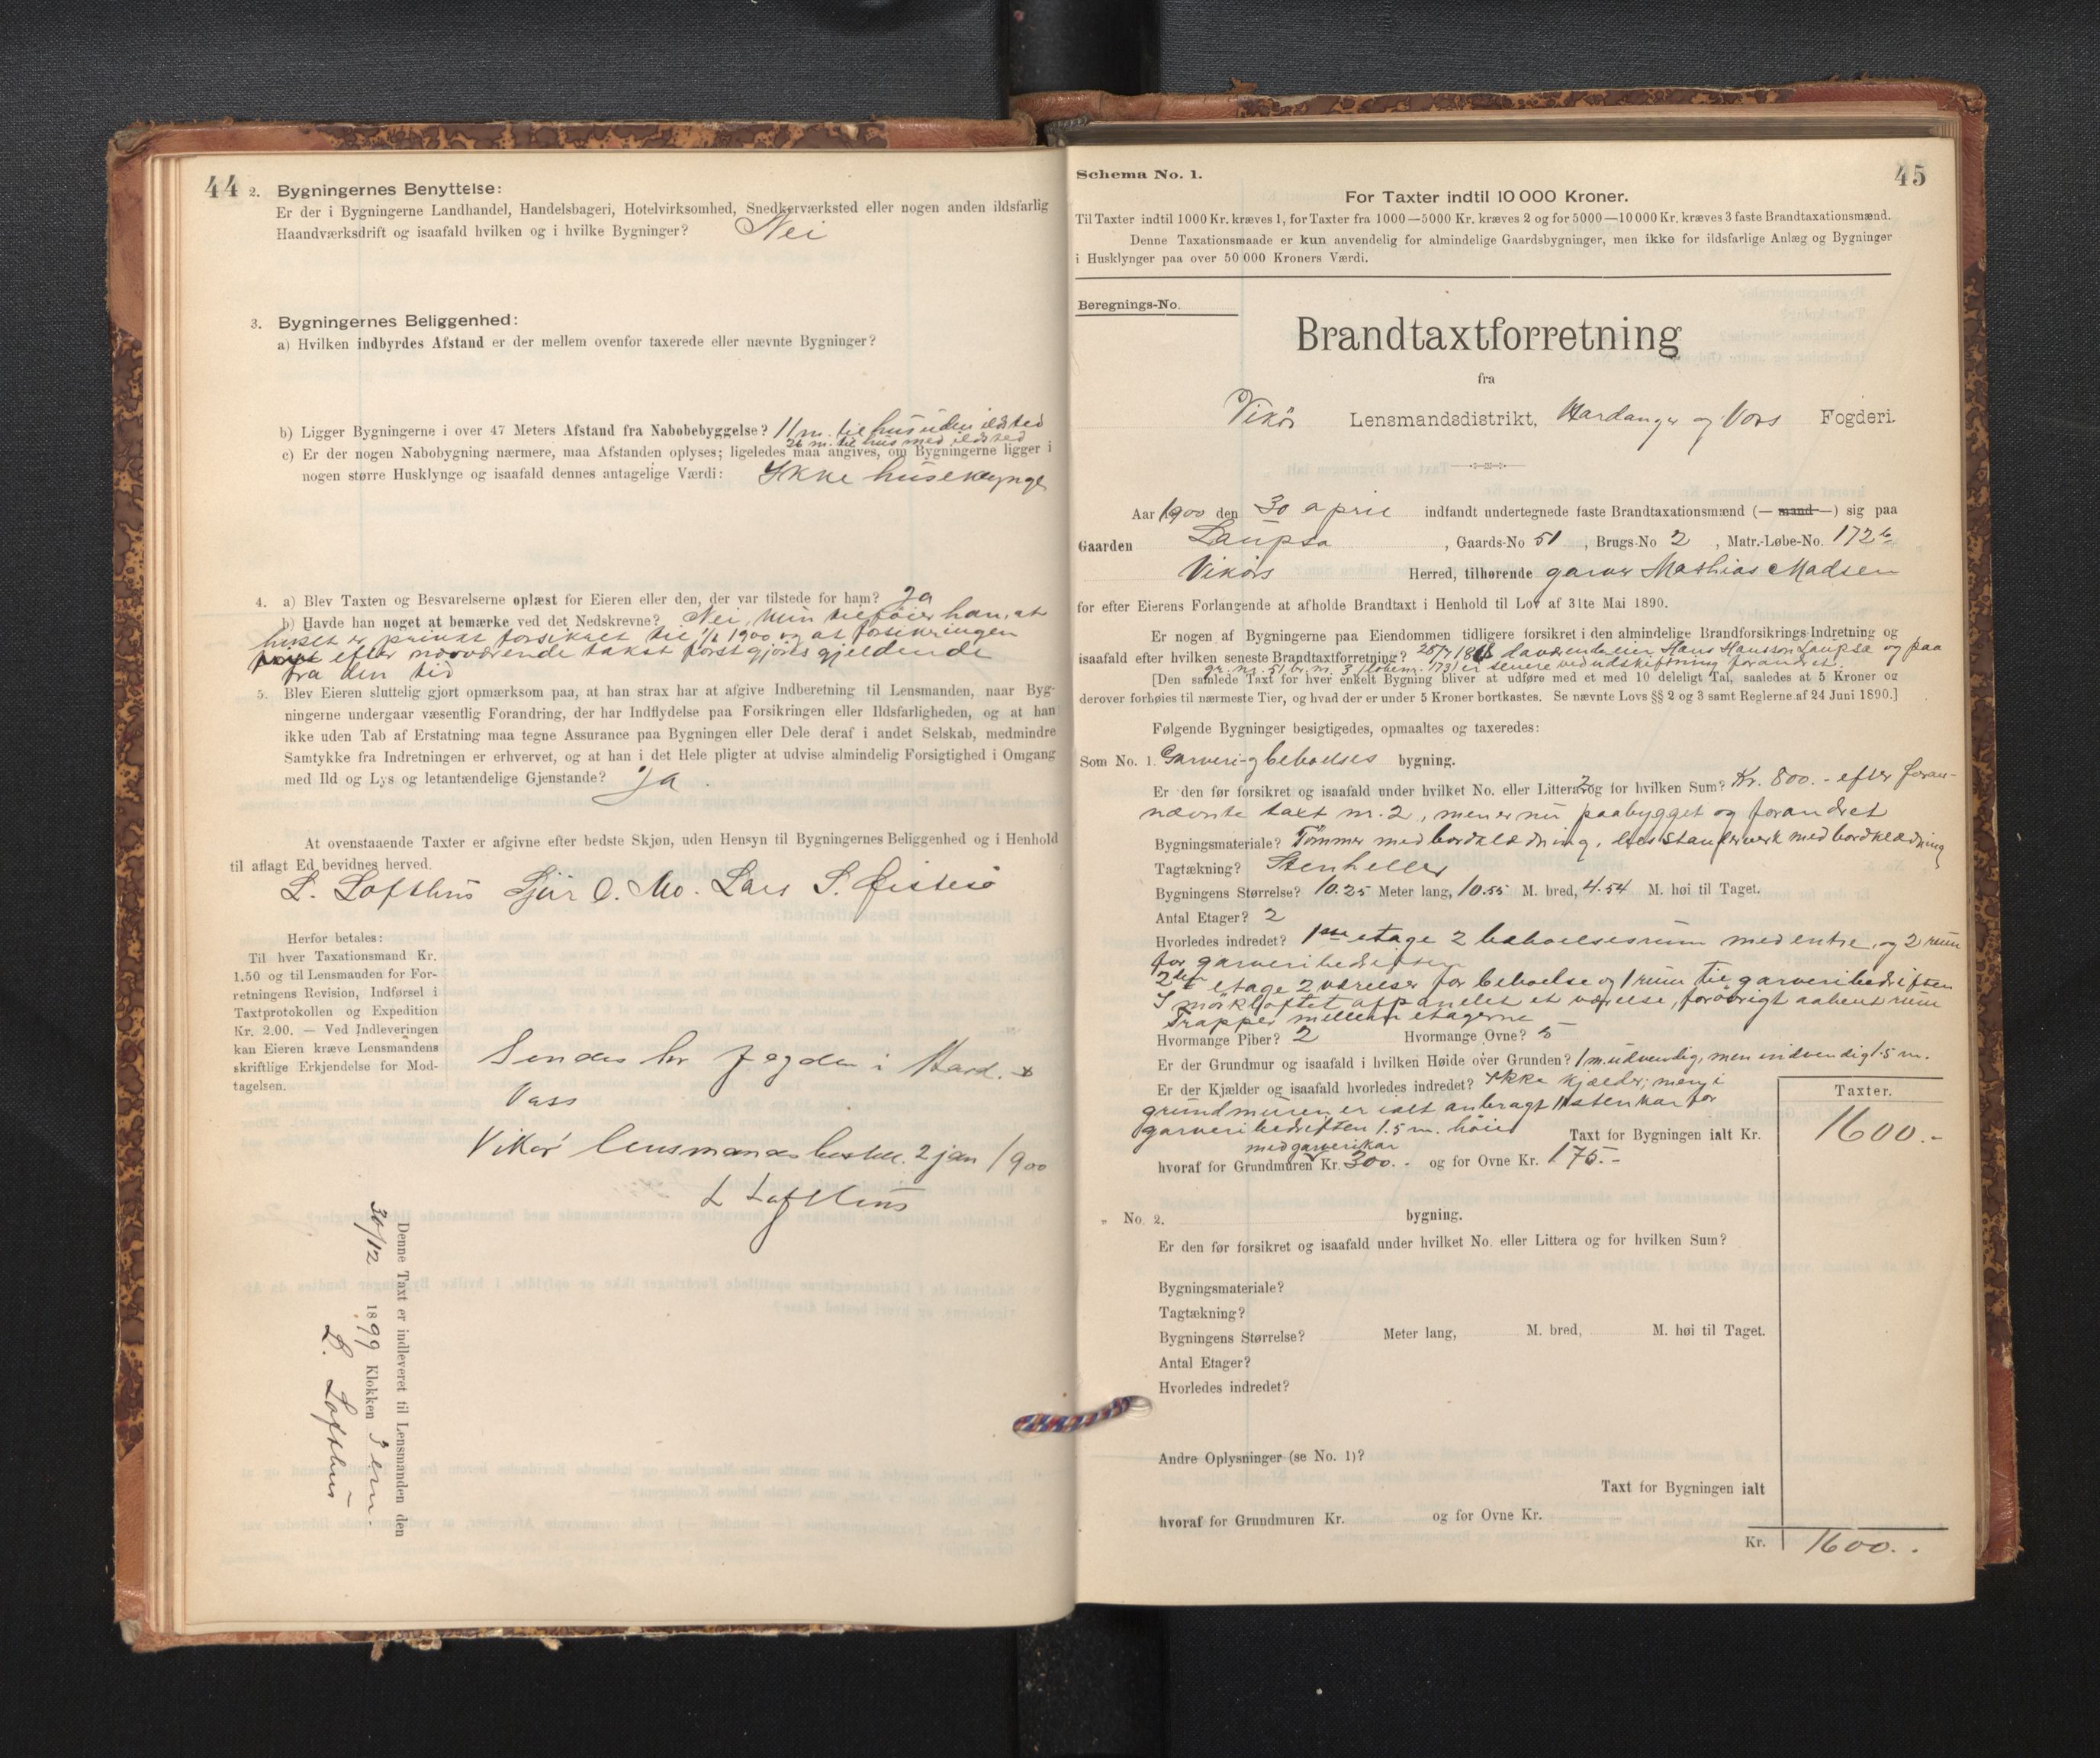 44
2. Bygningernes Benyttelse:
Er der i Bygningerne Landhandel, Handelsbageri, Hotelvirksomhed, Snedkerværksted eller nogen anden ildsfarlig
Haandværksdrift og isaafald hvilken og i hvilke Bygninger? Nei
3. Bygningernes Beliggenhed:
a) Hvilken indbyrdes Afstand er der mellem ovenfor taxerede eller nævnte Bygninger?
b) Ligger Bygningerne i over 47 Meters Afstand fra Nabobebyggelse? 11 m. til hus uden ildsted
26 m. til hus med ildsted
c) Er der nogen Nabobygning nærmere, maa Afstanden oplyses; ligeledes maa angives, om Bygningerne ligger i
nogen større Husklynge og isaafald dennes antagelige Værdi: Ikke huseklynge
4. a) Blev Taxten og Besvarelserne oplæst for Eieren eller den, der var tilstede for ham? Ja
b) Havde han noget at bemærke ved det Nedskrevne? Nei, men tilføier han, at
huset er privat forsikret til 1/2 1900 og at forsikringen
efter nærværende takst først gjøres gjeldende
fra den tid
5. Blev Eieren sluttelig gjort opmærksom paa, at han strax har at afgive Indberetning til Lensmanden, naar Byg-
ningerne undergaar væsentlig Forandring, der har Indflydelse paa Forsikringen eller Ildsfarligheden, og at han
ikke uden Tab af Erstatning maa tegne Assurance paa Bygningen eller Dele deraf i andet Selskab, medmindre
Samtykke fra Indretningen er erhvervet, og at han i det Hele pligter at udvise almindelig Forsigtighed i Omgang
med Ild og Lys og letantændelige Gjenstande? Ja.
At ovenstaaende Taxter er afgivne efter bedste Skjøn, uden Hensyn til Bygningernes Beliggenhed og i Henhold
til aflagt Ed bevidnes herved.
L. Lofthus Sjur O. Mo. Lars S. Øistesø
Herfor betales:
Til hver Taxationsmand Kr.
1.50 og til Lensmanden for For-
retningens Revision, Indførsel i
Taxtprotokollen og Expedition
Kr. 2.00. — Ved Indleveringen
kan Eieren kræve Lensmandens
skriftlige Erkjendelse for Mod-
tagelsen.
Sendes hr fogden i Hard. &
Voss
Vikør lensmandsbestill. 2 jan 1900
L Lofthus
Denne Taxt er indleveret til Lensmanden den
30/12 1899 Klokken 3 em.
L. Lofthus
45
Schema No. 1.
For Taxter indtil 10 000 Kroner.
Til Taxter indtil 1000 Kr. kræves 1, for Taxter fra 1000—5000 Kr. kræves 2 og for 5000—10 000 Kr. kræves 3 faste Brandtaxationsmænd.
Denne Taxationsmaade er kun anvendelig for almindelige Gaardsbygninger, men ikke for ildsfarlige Anlæg og Bygninger
i Husklynger paa over 50 000 Kroners Værdi.
Beregnings-No.
Brandtaxtforretning
fra
Vikør Lensmandsdistrikt, Hardanger og Vors Fogderi.
Aar 1900 den 30 april indfandt undertegnede faste Brandtaxationsmænd (— mand —) sig paa
Gaarden Laupsa, Gaards-No 51, Brugs-No 2, Matr.-Løbe-No. 172b
Vikørs Herred, tilhørende garver Mathias Madsen
for efter Eierens Forlangende at afholde Brandtaxt i Henhold til Lov af 31te Mai 1890.
Er nogen af Bygningerne paa Eiendommen tidligere forsikret i den almindelige Brandforsikrings-Indretning og
isaafald efter hvilken seneste Brandtaxtforretning? 25/7 18 daværende eier Hans Hansson Laupsa og paa
gr. nr. 51 br. nr. 3, løbenr. 173, er senere ved udskiftning forandret.
[Den samlede Taxt for hver enkelt Bygning bliver at udføre med et med 10 deleligt Tal, saaledes at 5 Kroner og
derover forhøies til nærmeste Tier, og hvad der er under 5 Kroner bortkastes. Se nævnte Lovs §§ 2 og 3 samt Reglerne af 24 Juni 1890.]
Følgende Bygninger besigtigedes, opmaaltes og taxeredes:
Som No. 1. Garveri- og beboelses bygning.
Er den før forsikret og isaafald under hvilket No. eller Littera 2 og for hvilken Sum? Kr. 800.- efter foran-
nævnte taxt nr. 2, men er nu paabygget og forandret
Bygningsmateriale? Tømmer med bordklædning, dels Stenderverk med bordklædning
Tagtækning? Stenheller
Bygningens Størrelse? 10.25 Meter lang, 10.55 M. bred, 4.54 M. høi til Taget.
Antal Etager? 2
Hvorledes indredet? 1ste etage 2 beboelsesrum med entre, og 2 rum
for garveribedriften
2den etage 2 værelser for beboelse og 1 rum til garveribedriften
I mørkloftet afpanelet et værelse, forøvrigt aabent rum
Trapper mellem etagerne
Hvormange Piber? 2 Hvormange Ovne? 5
Er der Grundmur og isaafald i hvilken Høide over Grunden? 1 m. udvendig, men indvendig 1.5 m.
Er der Kjælder og isaafald hvorledes indredet? Ikke kjælder; men i
grundmuren er ialt anbragt 11 stenkar for
garveribedriften 1.5 m. høie
Taxter.
Taxt for Bygningen ialt Kr. 1600.-
med garverikar
hvoraf for Grundmuren Kr. 300.- og for Ovne Kr. 175.-
„ No. 2. bygning.
Er den før forsikret og isaafald under hvilket No. eller Littera og for hvilken Sum?
Bygningsmateriale?
Tagtækning?
Bygningens Størrelse? Meter lang, M. bred, M. høi til Taget.
Antal Etager?
Hvorledes indredet?
Andre Oplysninger (se No. 1)?
Taxt for Bygningen ialt
hvoraf for Grundmuren Kr. og for Ovne Kr.
Kr. 1600.-